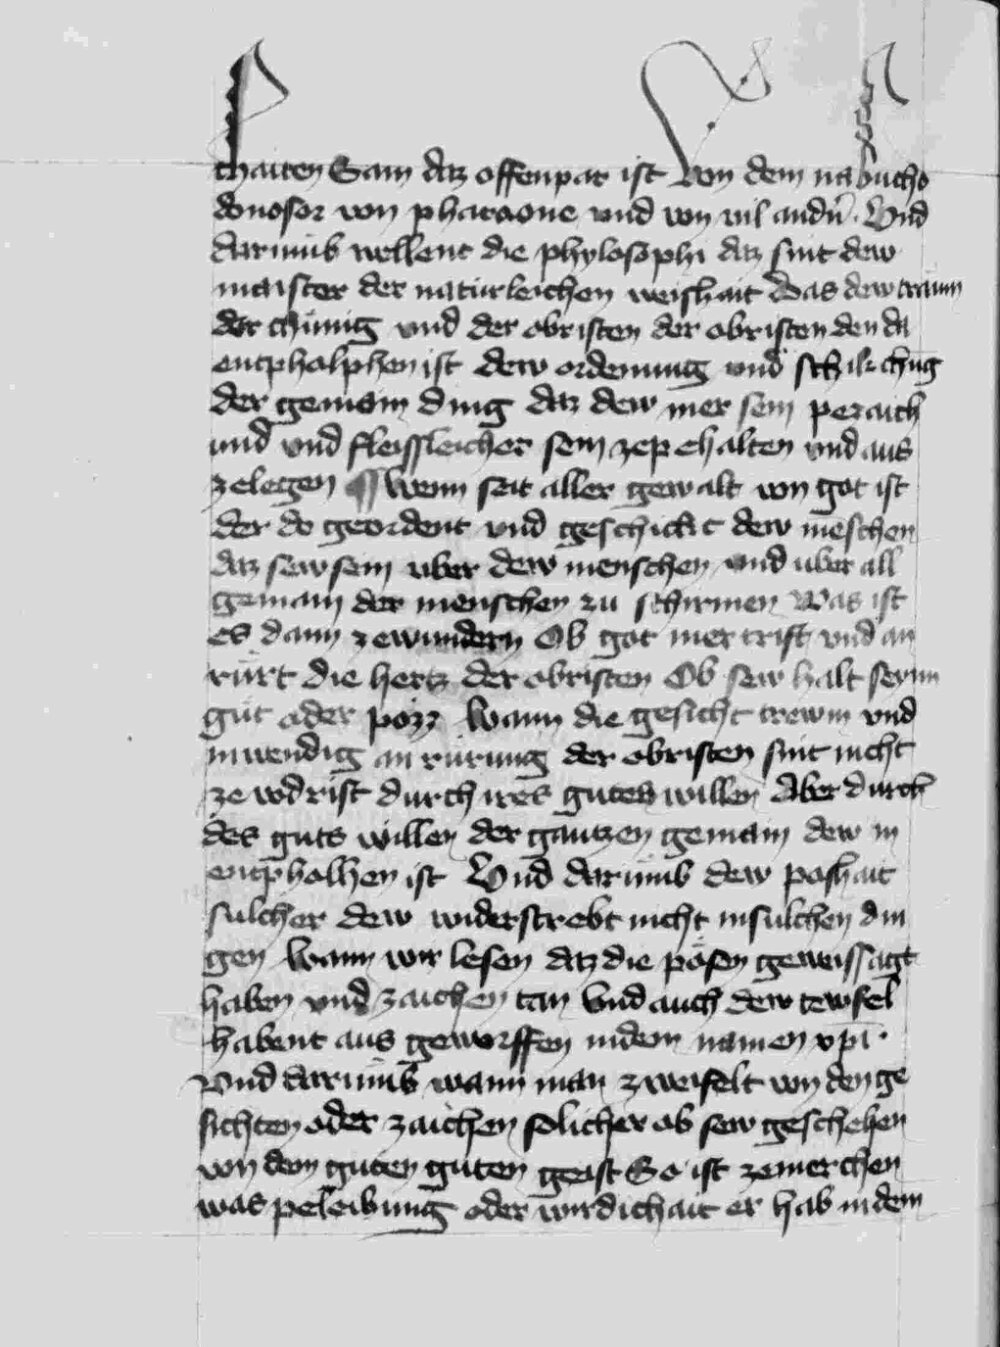 thaiten Sam daz offenpar ist von dem nabucho
donosor von pharaone und von vil andn̄. Und
darumb wellent die phylosophi daz sint dew
maister der naturleichen weishait Das dew traum
der chunig und der obristen der obristen den da
enphalphen ist dew ordenung und schikchūg
der gemain ding daz dew mer sein peraich
und und fleissleicher sein ze pehalten und aus
zelegen ¶ Wenn seit aller gewalt von got ist
der do geordent und geschickt dew mēschen
daz sew sein uber dew menschen und uber all
gemain der menschen zu schirmen Was ist
es dann zewundern Ob got mer trift und an
rurt die hertz der obristen Ob sew halt seynn
gut oder pözz Wann die gesicht trewm und
inwendig an rurung der obristen sint nicht
ze vodrist durch ires gutes willen Aber durch
des guts willen der gantzen gemain dew in
enpholhen ist Und darumb dew poshait
sulcher dew widerstrebt nicht in sulchen din
gen Wann wir lesen daz die pösen geweissagt
haben und zaichen tan Und auch dew tewfel
habent aus geworffen in dem namen xp̄i.
Und darumb wann man zweifelt von den ge
sichten oder zaichen solicher ob sew geschehen
von dem guten guten geist So ist zemerchen
was peleibung oder wirdichait er hab in dem